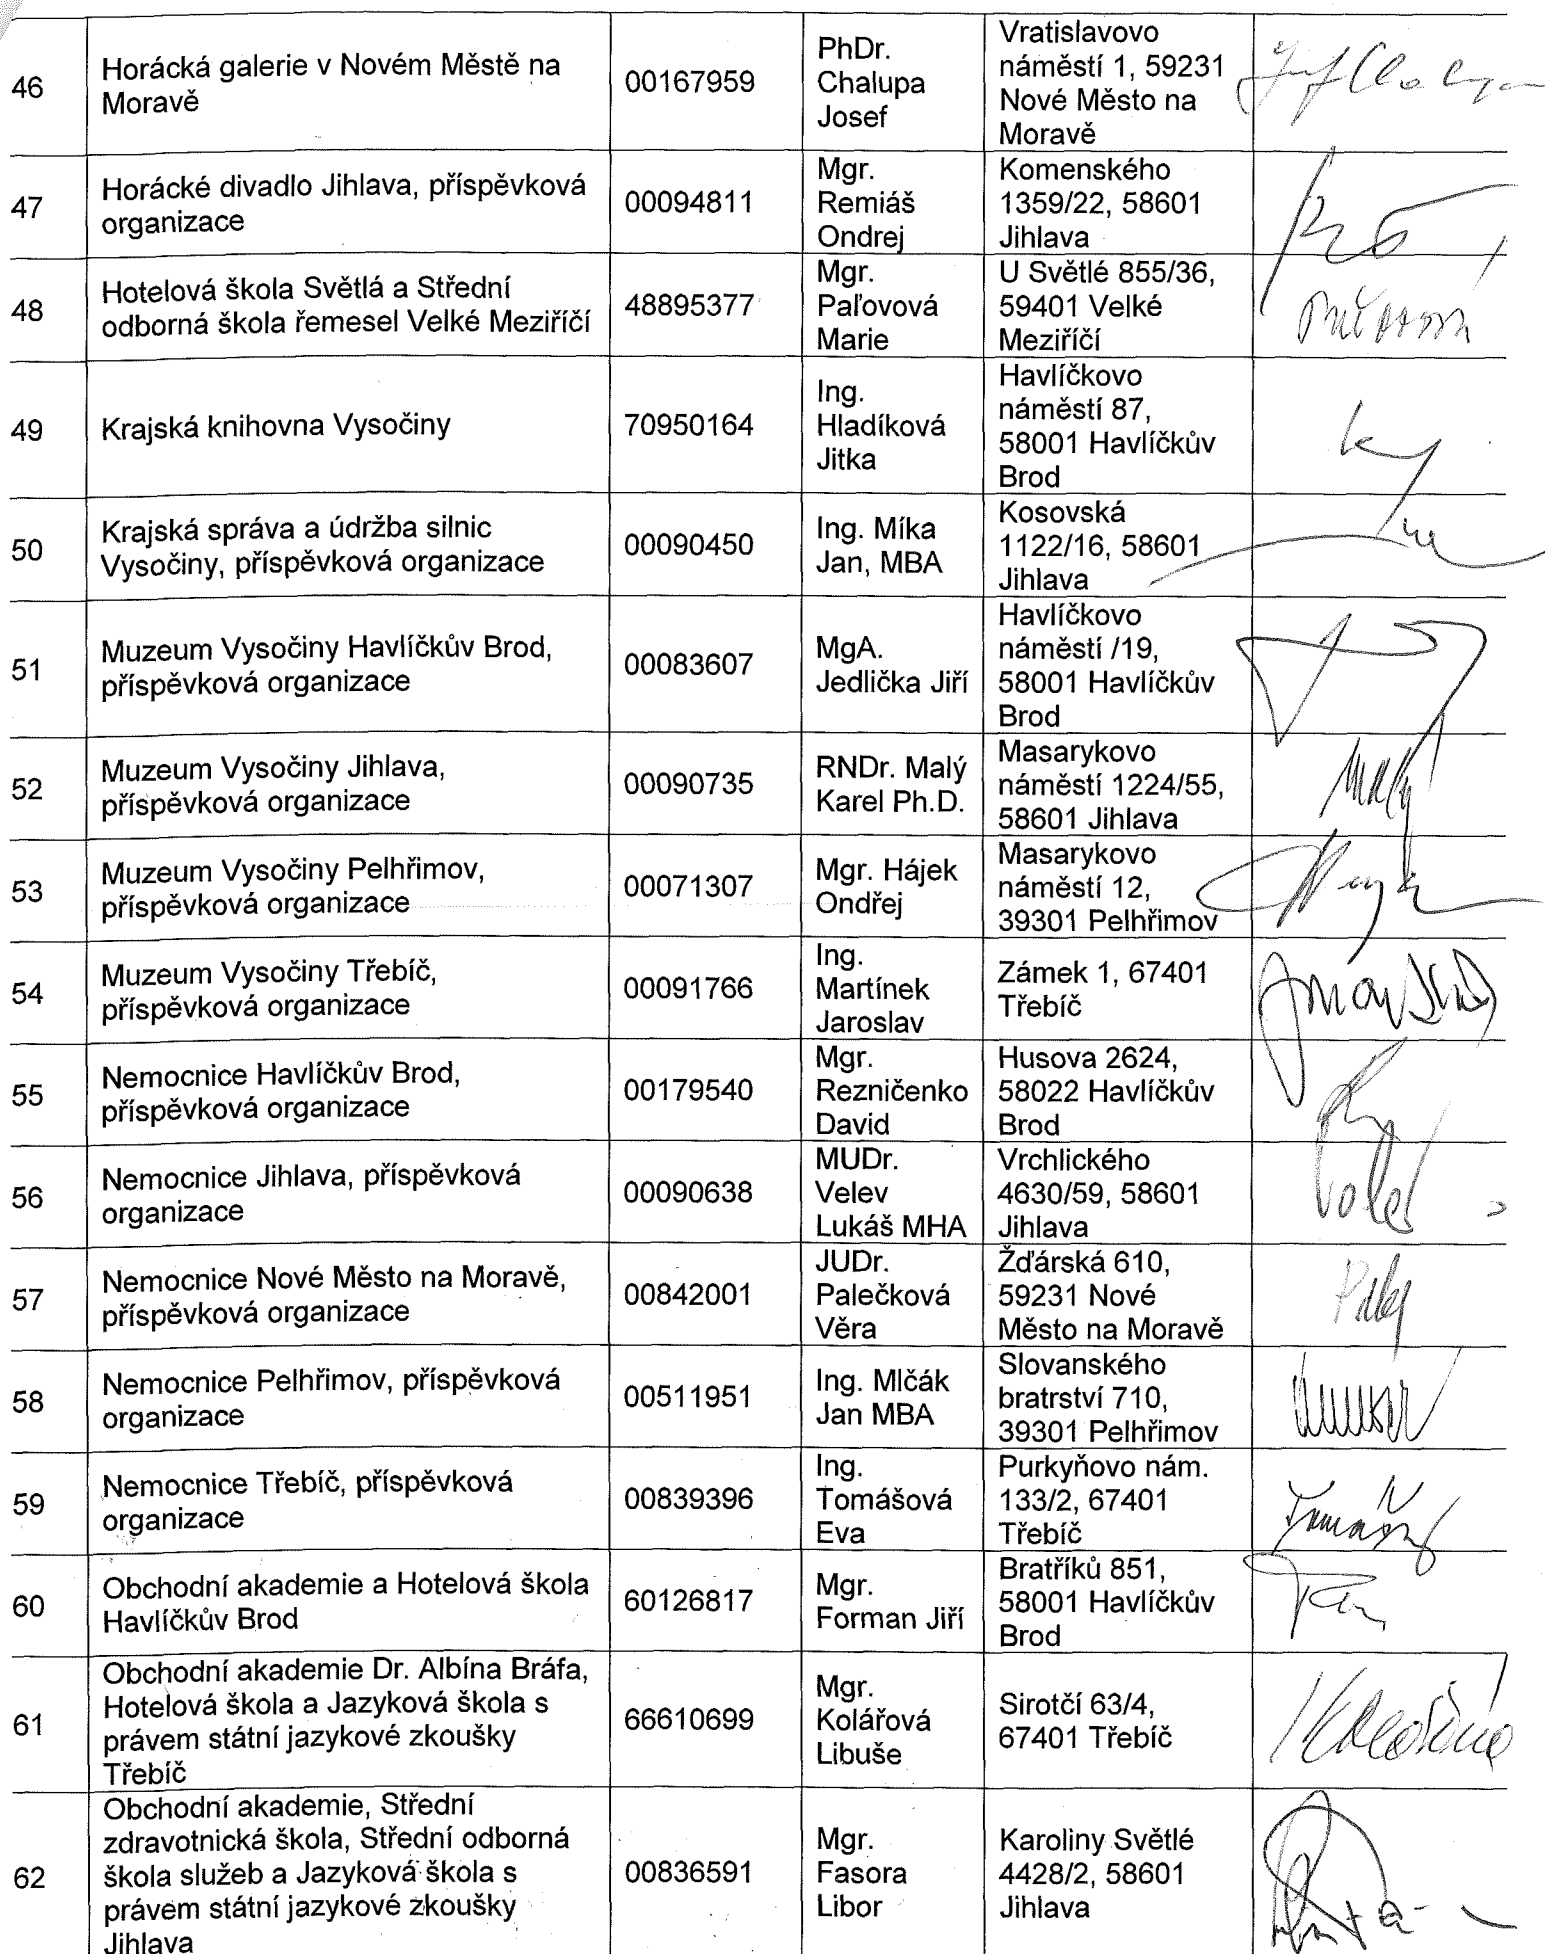 46
Horácká galerie v Novém Městě na
Moravě
00167959
PhDr.
Chalupa
Josef
Vratislavovo
náměstí 1, 59231
Nové Město na
Moravě
47
Horácké divadlo Jihlava, příspěvková
organizace
00094811
Mgr.
Remiáš
Ondrej
Komenského
1359/22, 58601
Jihlava
48
Hotelová škola Světlá a Střední
odborná škola řemesel Velké Meziříčí
48895377
Mgr.
Paľovová
Marie
U Světlé 855/36,
59401 Velké
Meziříčí
49
Krajská knihovna Vysočiny
70950164
Ing.
Hladíková
Jitka
Havlíčkovo
náměstí 87,
58001 Havlíčkův
Brod
50
Krajská správa a údržba silnic
Vysočiny, příspěvková organizace
00090450
Ing. Míka
Jan, MBA
Kosovská
1122/16, 58601
Jihlava
51
Muzeum Vysočiny Havlíčkův Brod,
příspěvková organizace
00083607
MgA.
Jedlička Jiří
Havlíčkovo
náměstí /19,
58001 Havlíčkův
Brod
52
Muzeum Vysočiny Jihlava,
příspěvková organizace
00090735
RNDr. Malý
Karel Ph.D.
Masarykovo
náměstí 1224/55,
58601 Jihlava
Malý
53
Muzeum Vysočiny Pelhřimov,
příspěvková organizace
00071307
Mgr. Hájek
Ondřej
Masarykovo
náměstí 12,
39301 Pelhřimov
54
Muzeum Vysočiny Třebíč,
příspěvková organizace
00091766
Ing.
Martínek
Jaroslav
Zámek 1, 67401
Třebíč
55
Nemocnice Havlíčkův Brod,
příspěvková organizace
00179540
Mgr.
Rezničenko
David
Husova 2624,
58022 Havlíčkův
Brod
56
Nemocnice Jihlava, příspěvková
organizace
00090638
MUDr.
Velev
Lukáš MHA
Vrchlického
4630/59, 58601
Jihlava
57
Nemocnice Nové Město na Moravě,
příspěvková organizace
00842001
JUDr.
Palečková
Věra
Žďárská 610,
59231 Nové
Město na Moravě
58
Nemocnice Pelhřimov, příspěvková
organizace
00511951
Ing. Mlčák
Jan MBA
Slovanského
bratrství 710,
39301 Pelhřimov
59
Nemocnice Třebíč, příspěvková
organizace
00839396
Ing.
Tomášová
Eva
Purkyňovo nám.
133/2, 67401
Třebíč
60
Obchodní akademie a Hotelová škola
Havlíčkův Brod
60126817
Mgr.
Forman Jiří
Bratříků 851,
58001 Havlíčkův
Brod
61
Obchodní akademie Dr. Albína Bráfa,
Hotelová škola a Jazyková škola s
právem státní jazykové zkoušky
Třebíč
66610699
Mgr.
Kolářová
Libuše
Sirotčí 63/4,
67401 Třebíč
62
Obchodní akademie, Střední
zdravotnická škola, Střední odborná
škola služeb a Jazyková škola s
právem státní jazykové zkoušky
Jihlava
00836591
Mgr.
Fasora
Libor
Karoliny Světlé
4428/2, 58601
Jihlava